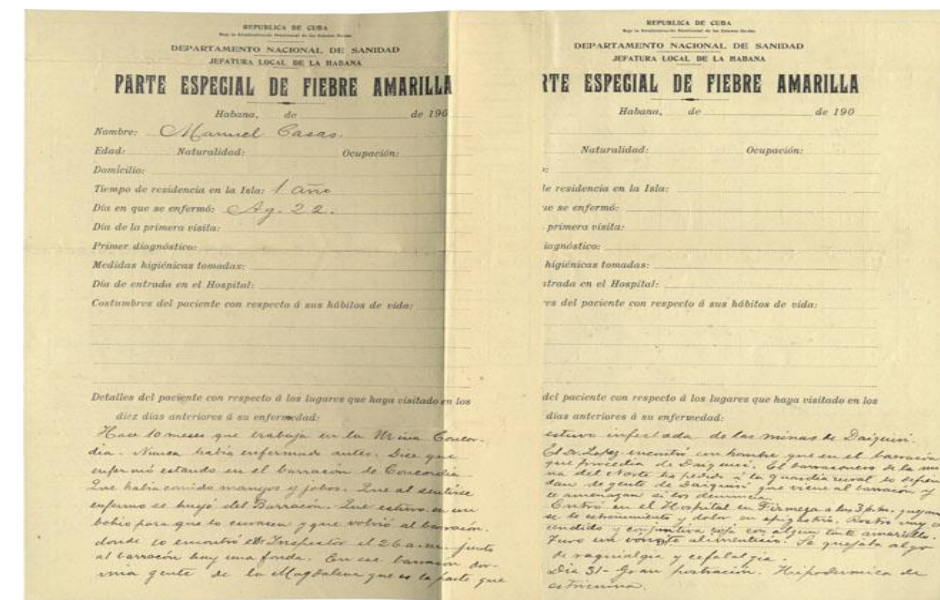 REPUBLICA DE CUBA
DEPARTAMENTO NACIONAL DE SANIDAD
JEFATURA LOCAL DE LA HABANA
PARTE ESPECIAL DE FIEBRE AMARILLA
Habana, de de 190
Nombre: Manuel Casas.
Edad: Naturalidad: Ocupación:
Domicilio:
Tiempo de residencia en la Isla: 1 año
Día en que se enfermó: Ag. 22.
Día de la primera visita:
Primer diagnóstico:
Medidas higiénicas tomadas:
Día de entrada en el Hospital:
Costumbres del paciente con respecto á sus hábitos de vida:
Detalles del paciente con respecto á los lugares que haya visitado en los
diez días anteriores á su enfermedad:
Hace 10 meses que trabaja en la Mina Concor-
dia. Nunca había enfermado antes. Dice que
enfermó estando en el barracón de Concordia
Que había comido mangos y jobos. Que al sentirse
enfermo se huyó del Barracón. Que estuvo en un
bohio para que lo curasen y que volvió al barracón
donde lo encontró el Inspector el 26 a.m. junto
al barracón hay una fonda. En ese barracón dor-
mia gente de la Magdalena que es la parte que
REPUBLICA DE CUBA
DEPARTAMENTO NACIONAL DE SANIDAD
JEFATURA LOCAL DE LA HABANA
RTE ESPECIAL DE FIEBRE AMARILLA
Habana, de de 190
Naturalidad: Ocupación:
de residencia en la Isla:
ue se enfermó:
primera visita:
iagnóstico:
higiénicas tomadas:
ntrada en el Hospital:
es del paciente con respecto á sus hábitos de vida:
del paciente con respecto á los lugares que haya visitado en los
días anteriores á su enfermedad:
estuvo infectada de las minas de Daiquirí.
El Dr. Lopez encontró un hombre que en el barracón
que procedia de Daiquirí. El barraconero de la mi
na del Norte ha pedido á la guardia rural lo defien
dan de gente de Daiquirí que viene al barracón y
le amenazan si los denuncia.
Entró en el Hospital en Firmeza a las 3 p.m. quejan
se de estreñimiento y dolor en epigastrio. Rostro muy
cendido y conjuntiva roja con algun tinte amarillo.
Tuvo un vomito alimenticio. Se quejaba algo
de raquialgia y cefalalgia.
Dia 31 - Gran postración. Hipodermica de
estricnina.